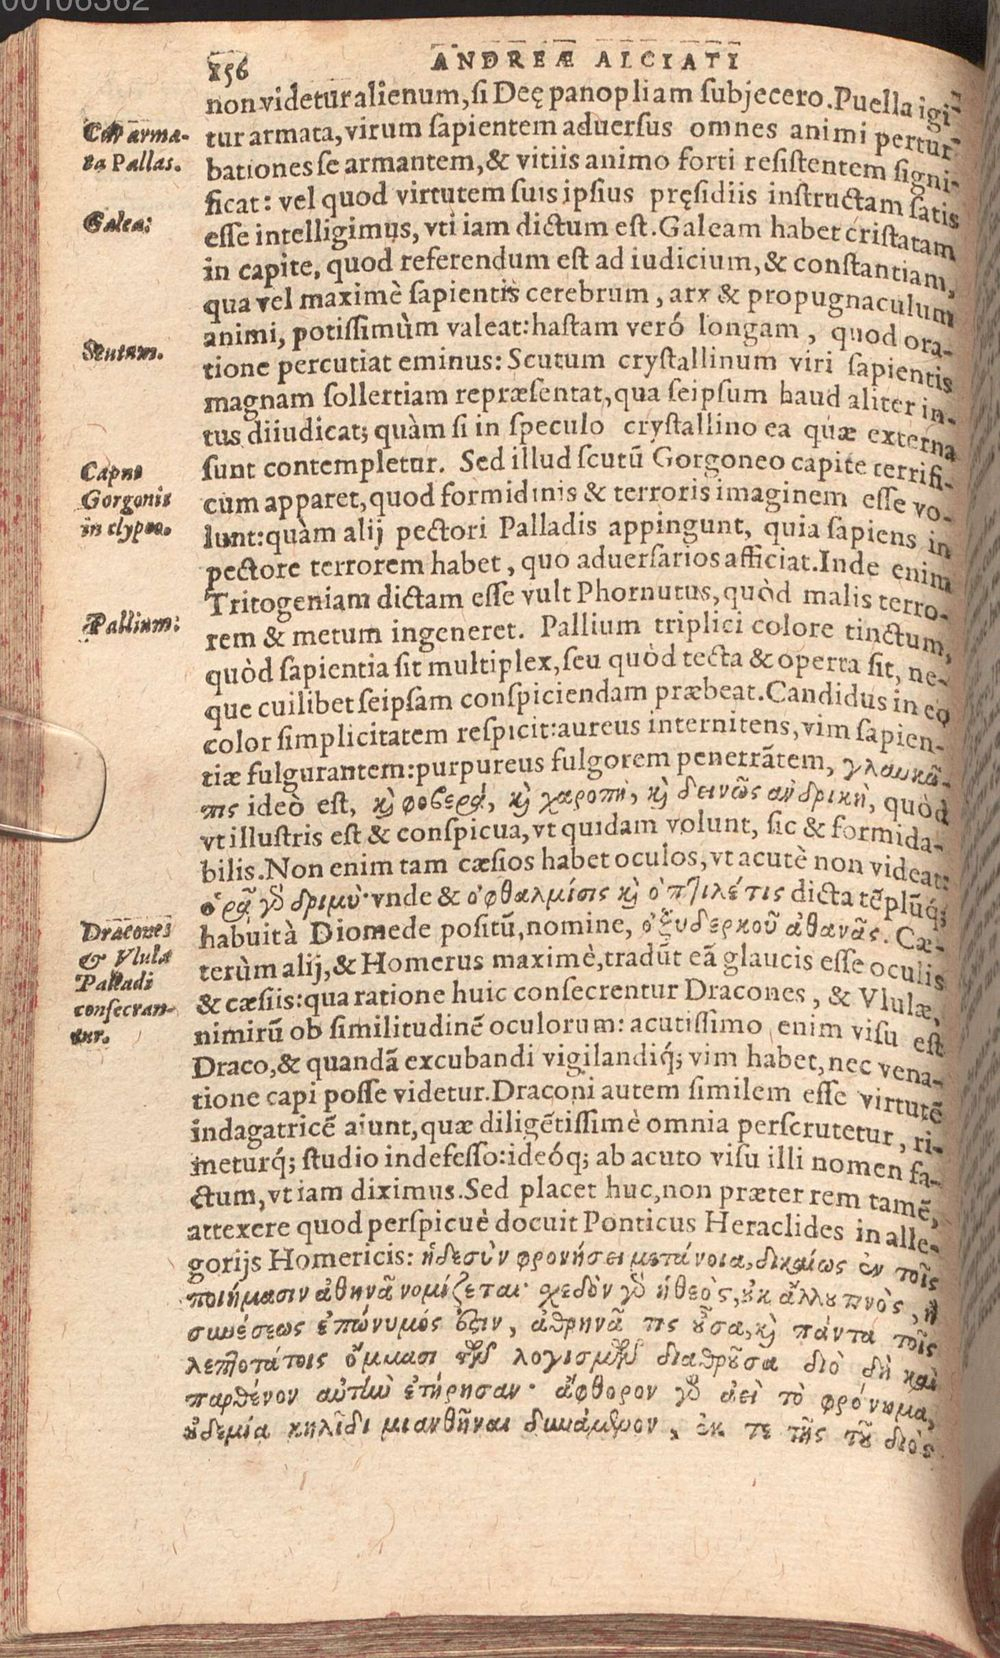 00106362
156
ANDREÆ ALCIATI
non videtur alienum, si Deę panopliam subjecero. Puella igi-
Cur arma-
ta Pallas.
tur armata, virum sapientem aduersus omnes animi pertur-
bationes se armantem, & vitiis animo forti resistentem signi-
ficat: vel quod virtutem suis ipsius pręsidiis instructam satis
Galea:
esse intelligimus, vti iam dictum est. Galeam habet cristatam
in capite, quod referendum est ad iudicium, & constantiam,
qua vel maximè sapientis cerebrum, arx & propugnaculum
animi, potissimùm valeat: hastam veró longam, quod ora-
Scutum.
tione percutiat eminus: Scutum crystallinum viri sapientis
magnam sollertiam repræsentat, qua seipsum haud aliter in-
tus diiudicat; quàm si in speculo crystallino ea quæ externa
Caput
Gorgonis
in clypeo.
sunt contempletur. Sed illud scutū Gorgoneo capite terrifi-
cum apparet, quod formidinis & terroris imaginem esse vo-
lunt: quàm alij pectori Palladis appingunt, quia sapiens in
pectore terrorem habet, quo aduersarios afficiat. Inde enim
Tritogeniam dictam esse vult Phornutus, quòd malis terro-
Pallium:
rem & metum ingeneret. Pallium triplici colore tinctum,
quòd sapientia sit multiplex, seu quòd tecta & operta sit, ne-
que cuilibet seipsam conspiciendam præbeat. Candidus in eo
color simplicitatem respicit: aureus internitens, vim sapien-
tiæ fulgurantem: purpureus fulgorem penetrātem, γλαυκῶ-
πις ideò est, κỳ φοβερά, κỳ χαροπὴ, κỳ δεινῶς ἀνδρικὴ, quòd
vt illustris est & conspicua, vt quidam volunt, sic & formida-
bilis. Non enim tam cæsios habet oculos, vt acutè non videat:
ὁρᾷ γὸ δριμὺ· vnde & ὀφθαλμίσις κỳ ὀπτιλέτις dicta tēplūq́;
Dracones
& Vlulæ
Palladi
consecran-
tur.
habuit à Diomede positū, nomine, ὀξυδερκοῦ ἀθανᾶς. Cæ-
terùm alij, & Homerus maximè, tradūt eā glaucis esse oculis
& cæsiis: qua ratione huic consecrentur Dracones, & Vlulæ,
nimirū ob similitudinē oculorum: acutissimo enim visu est
Draco, & quandā excubandi vigilandiq́; vim habet, nec vena-
tione capi posse videtur. Draconi autem similem esse virtutē
indagatricē aiunt, quæ diligētissimè omnia perscrutetur, ri-
meturq́; studio indefesso: ideóq; ab acuto visu illi nomen fa-
ctum, vt iam diximus. Sed placet huc, non præter rem tamē,
attexere quod perspicuè docuit Ponticus Heraclides in alle-
gorijs Homericis: ἡδεσὺν φρονήσει μετάνοια, δικαίως ἐν τοῖς
ποιήμασιν ἀθηνᾶ νομίζεται· χεδὸν γὸ ἡ θεὸς, ȣκ ἄλλȣ πνὸς, ἢ
συνέσεως ἐπώνυμός ἐϛιν, ἀθρηνᾶ τις ȣ̃σα, κỳ πάντα τοῖς
λεπτοτάτοις ὄμμασι τῶν λογισμῶν διαθρȣ̃σα διὸ δὴ καὶ
παρθένον αὐτὴν ἐτήρησαν· ἄφθορον γὸ ἀεὶ τὸ φρόνημα,
ȣδεμία κηλῖδι μιανθῆναι δυνάμενον, ἐκ τε τῆς τȣ̃ διὸς